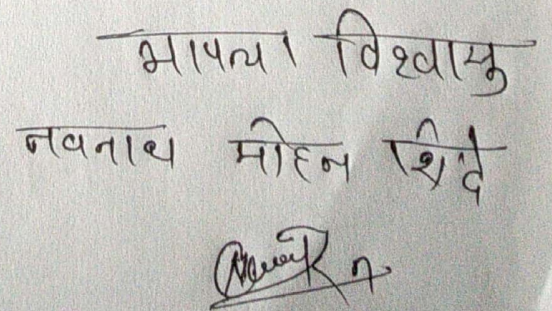 आपला विश्वासु
नवनाथ मोहन शिंदे